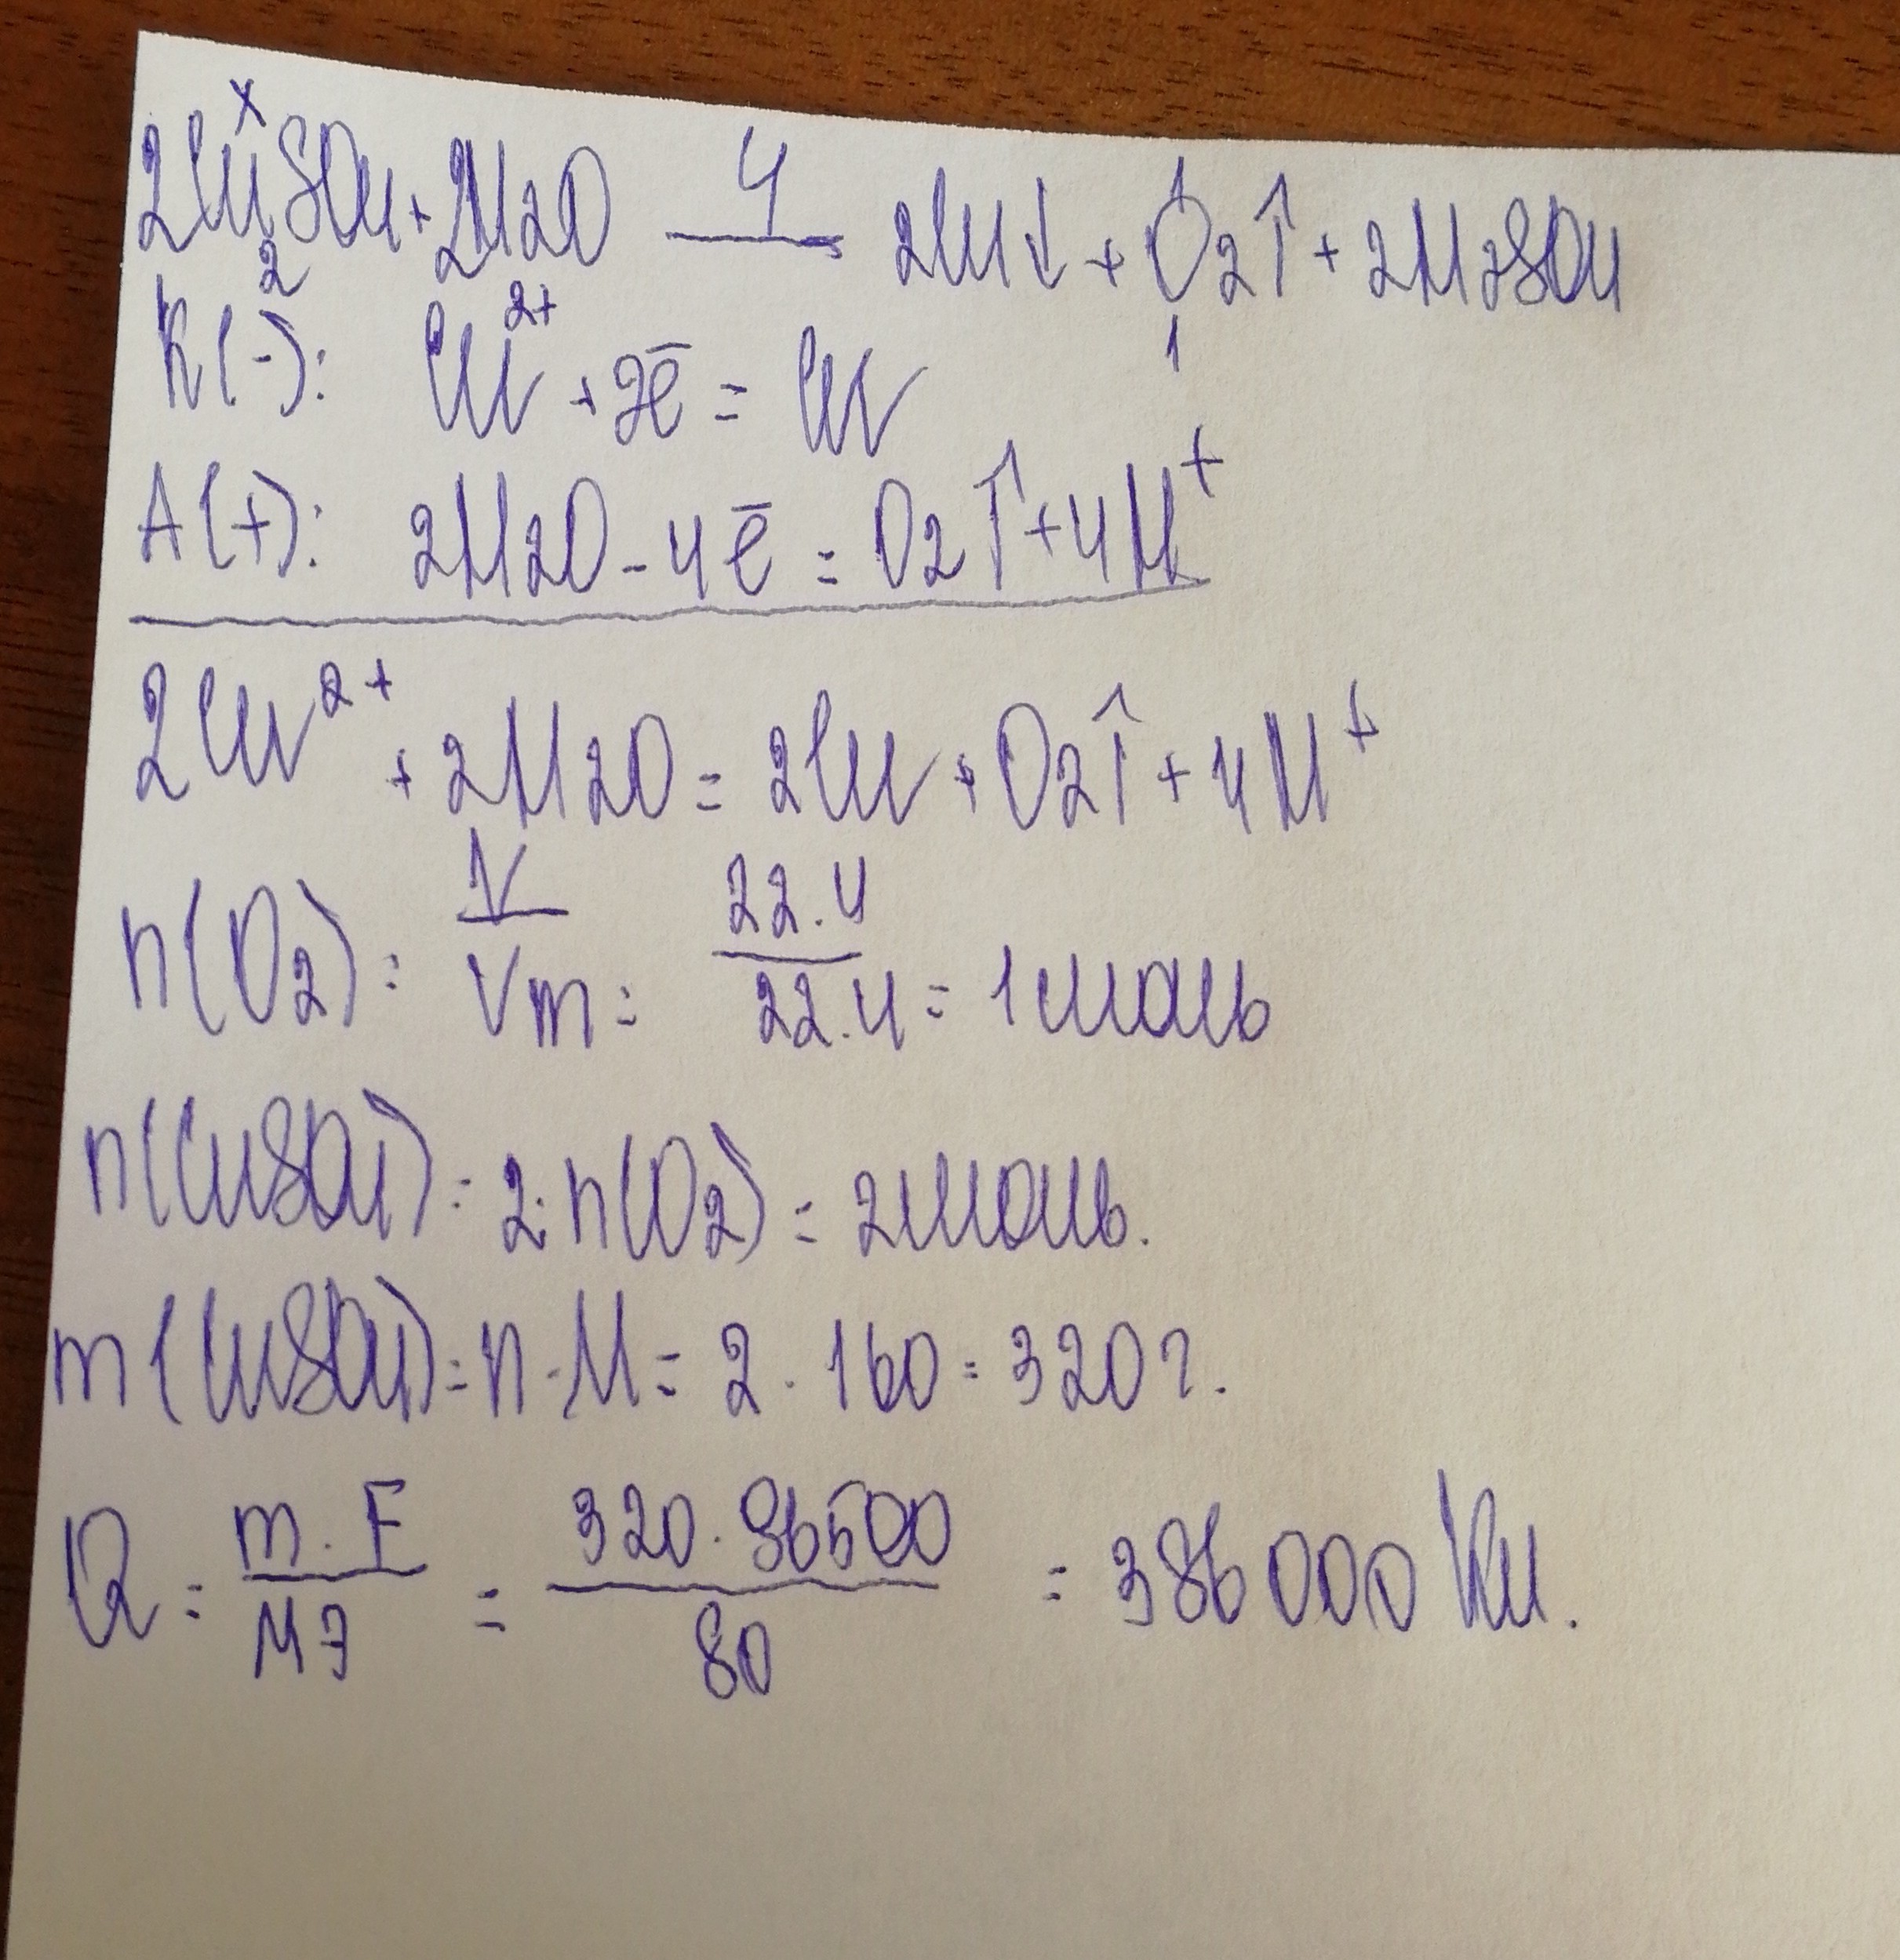 2CuSO4 + 2H2O —4→ 2Cu↓ + O2↑ + 2H2SO4
x 2 1 1
K(-): Cu²⁺ + 2ē = Cu
A(+): 2H2O - 4ē = O2↑ + 4H⁺
2Cu²⁺ + 2H2O = 2Cu + O2↑ + 4H⁺
n(O2) = V/Vm = 22.4/22.4 = 1 моль
n(CuSO4) = 2·n(O2) = 2 моль.
m(CuSO4) = n·M = 2·160 = 320 г.
Q = m·F/Mэ = 320·96500/80 = 386000 Кл.